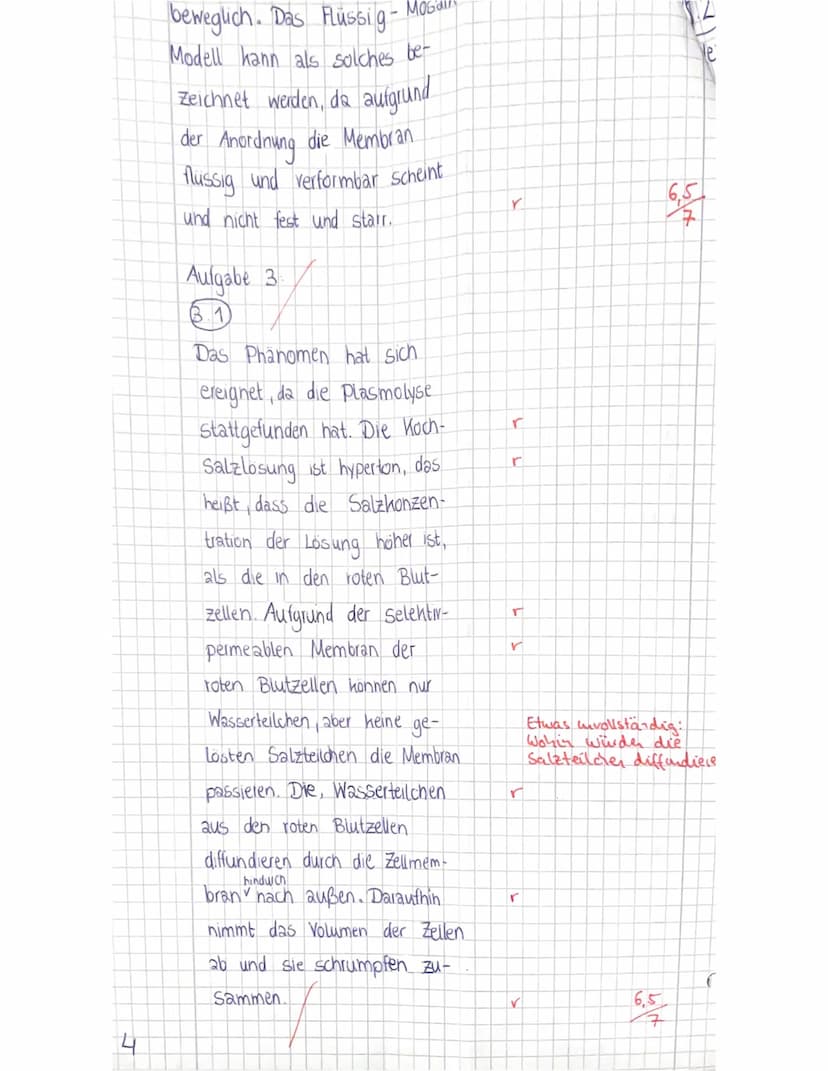 beweglich. Das Flüssig- Mosaik
Modell kann als solches be-
zeichnet werden, da aufgrund
der Anordnung die Membran
flüssig und verformbar scheint
und nicht fest und starr.
r
6,5
7
Aufgabe 3
3.1
Das Phänomen hat sich
ereignet, da die Plasmolyse
stattgefunden hat. Die Koch-
r
salzlösung ist hyperton, das
r
heißt, dass die Salzkonzen-
tration der Lösung höher ist,
als die in den roten Blut-
zellen. Aufgrund der selektiv-
r
permeablen Membran der
r
roten Blutzellen können nur
Wasserteilchen, aber keine ge-
lösten Salzteilchen die Membran
Etwas unvollständig:
Wohin würden die
Salzteilchen diffundiere
passieren. Die, Wasserteilchen
r
aus den roten Blutzellen
diffundieren durch die Zellmem-
bran hindurch nach außen. Daraufhin
r
nimmt das Volumen der Zellen
ab und sie schrumpfen zu-
sammen.
r
6,5
7
4